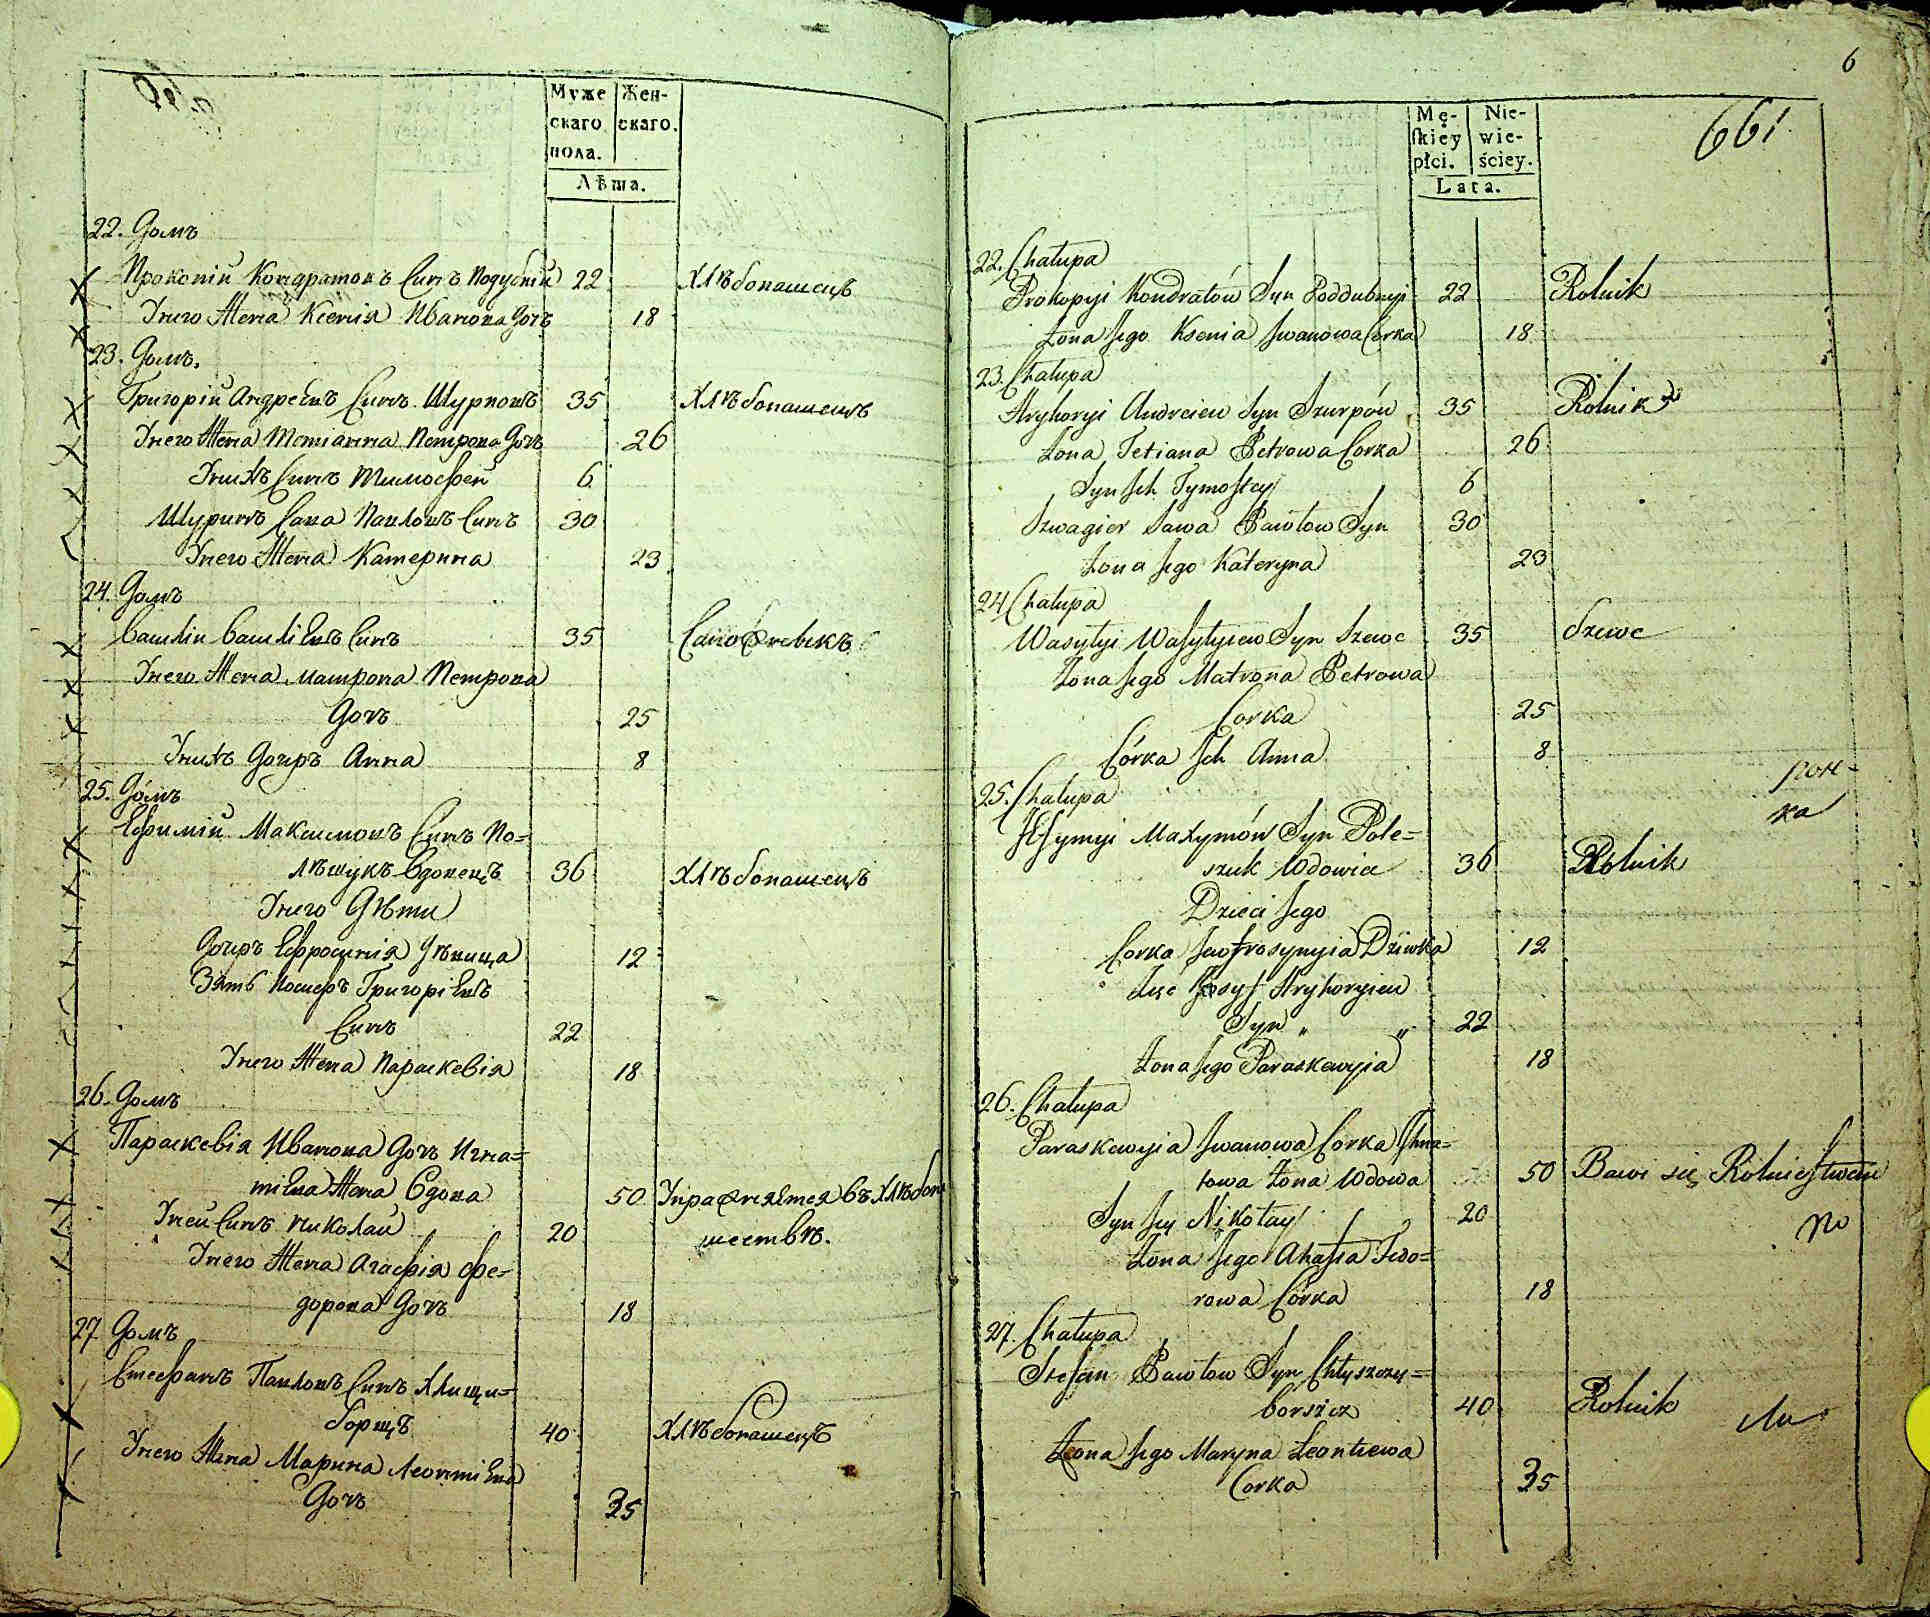 Муже
скаго
пола.
Жен-
скаго.
Лѣта.
22. Домъ
Прокопій Кондратовъ Синъ Подубній 22 Хлѣбопашецъ
Унего Жена Ксенія Иванова Дочъ 18
23. Домъ.
Григорій Андреевъ Синъ Шурповъ 35 Хлѣбопашецъ
Унего Жена Тетіанна Петрова Дочъ 26
Унихъ Синъ Тимофей 6
Шуринъ Сава Павловъ Синъ 30
Унего Жена Катерина 23
24. Домъ
Василій Василіевъ Синъ 35
Унего Жена Матрона Петрова
Дочъ 25
Унихъ Дочеръ Анна 8
25. Домъ
Ефимій Максимовъ Синъ По-
лѣшукъ Вдовецъ 36 Хлѣбопашецъ
Унего Дѣти
Дочеръ Ефросинія Дѣвица 12
Зять Іосифъ Григоріевъ
Синъ 22
Унего Жена Параскевія 18
26. Домъ
Параскевія Иванова Дочъ Игна-
тіева Жена Вдова 50 Упражняется въ Хлѣбопа
шествѣ.
Унеи Синъ Николай 20
Унего Жена Агафія Фе-
дорова Дочъ 18
27 Домъ
Стефанъ Павловъ Синъ Хлищи-
борщъ 40 Хлѣбопашецъ
Унего Жена Марина Леонтіева
Дочъ 35
6
661
Mę-
skiéy
płci.
Nie-
wie-
ściey.
Lata.
22. Chałupa
Prokopyi Kondratów Syn Poddubnyi 22 Rolnik
Żona Jego Ksenia Jwanowa Corka 18
23. Chałupa
Hryhoryi Andreiew Syn Szurpów 35 Rolnik
Żona Tetiana Petrowa Corka 26
Syn Jch Tymoftey 6
Szwagier Sawa Pawłow Syn 30
Żona Jego Kateryna 23
24 Chałupa
Wasylyi Wasylyiew Syn Szewc 35 Szewc
Żona Jego Matrona Petrowa
Corka 25
Córka Jch Anna 8
25. Chałupa
Jefymyi Maxymów Syn Pole-
szuk Wdowiec 36 Rolnik
Dzieci Jego
Corka Jewfrosynyia Dziwka 12
Josyf Hryhoryiew
Syn " " 22
Żona Jego Paraskewyia 18
26. Chałupa
Paraskewyia Jwanowa Corka Jhna-
towa Żona Wdowa 50 Bawi się Rolnictwem
Syn Jey Nikołay 20
Żona Jego Ahafia Fedo-
rowa Córka 18
27. Chałupa
Stefan Pawłow Syn Chłyszczy-
borszcz 40 Rolnik
Żona Jego Maryna Leontiewa
Corka 35